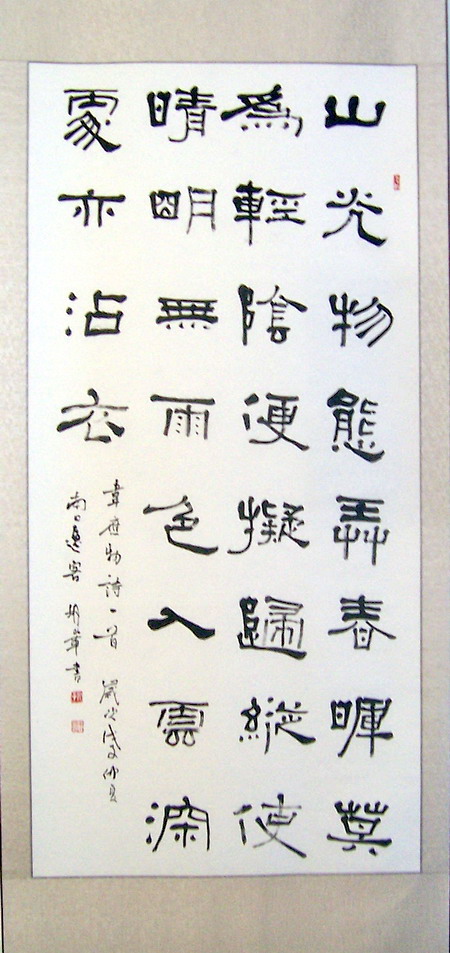 山光物態弄春暉莫
爲輕陰便擬歸縱使
晴明無雨色入雲深
處亦沾衣
韋應物詩一首 歲次戊仲夏
書